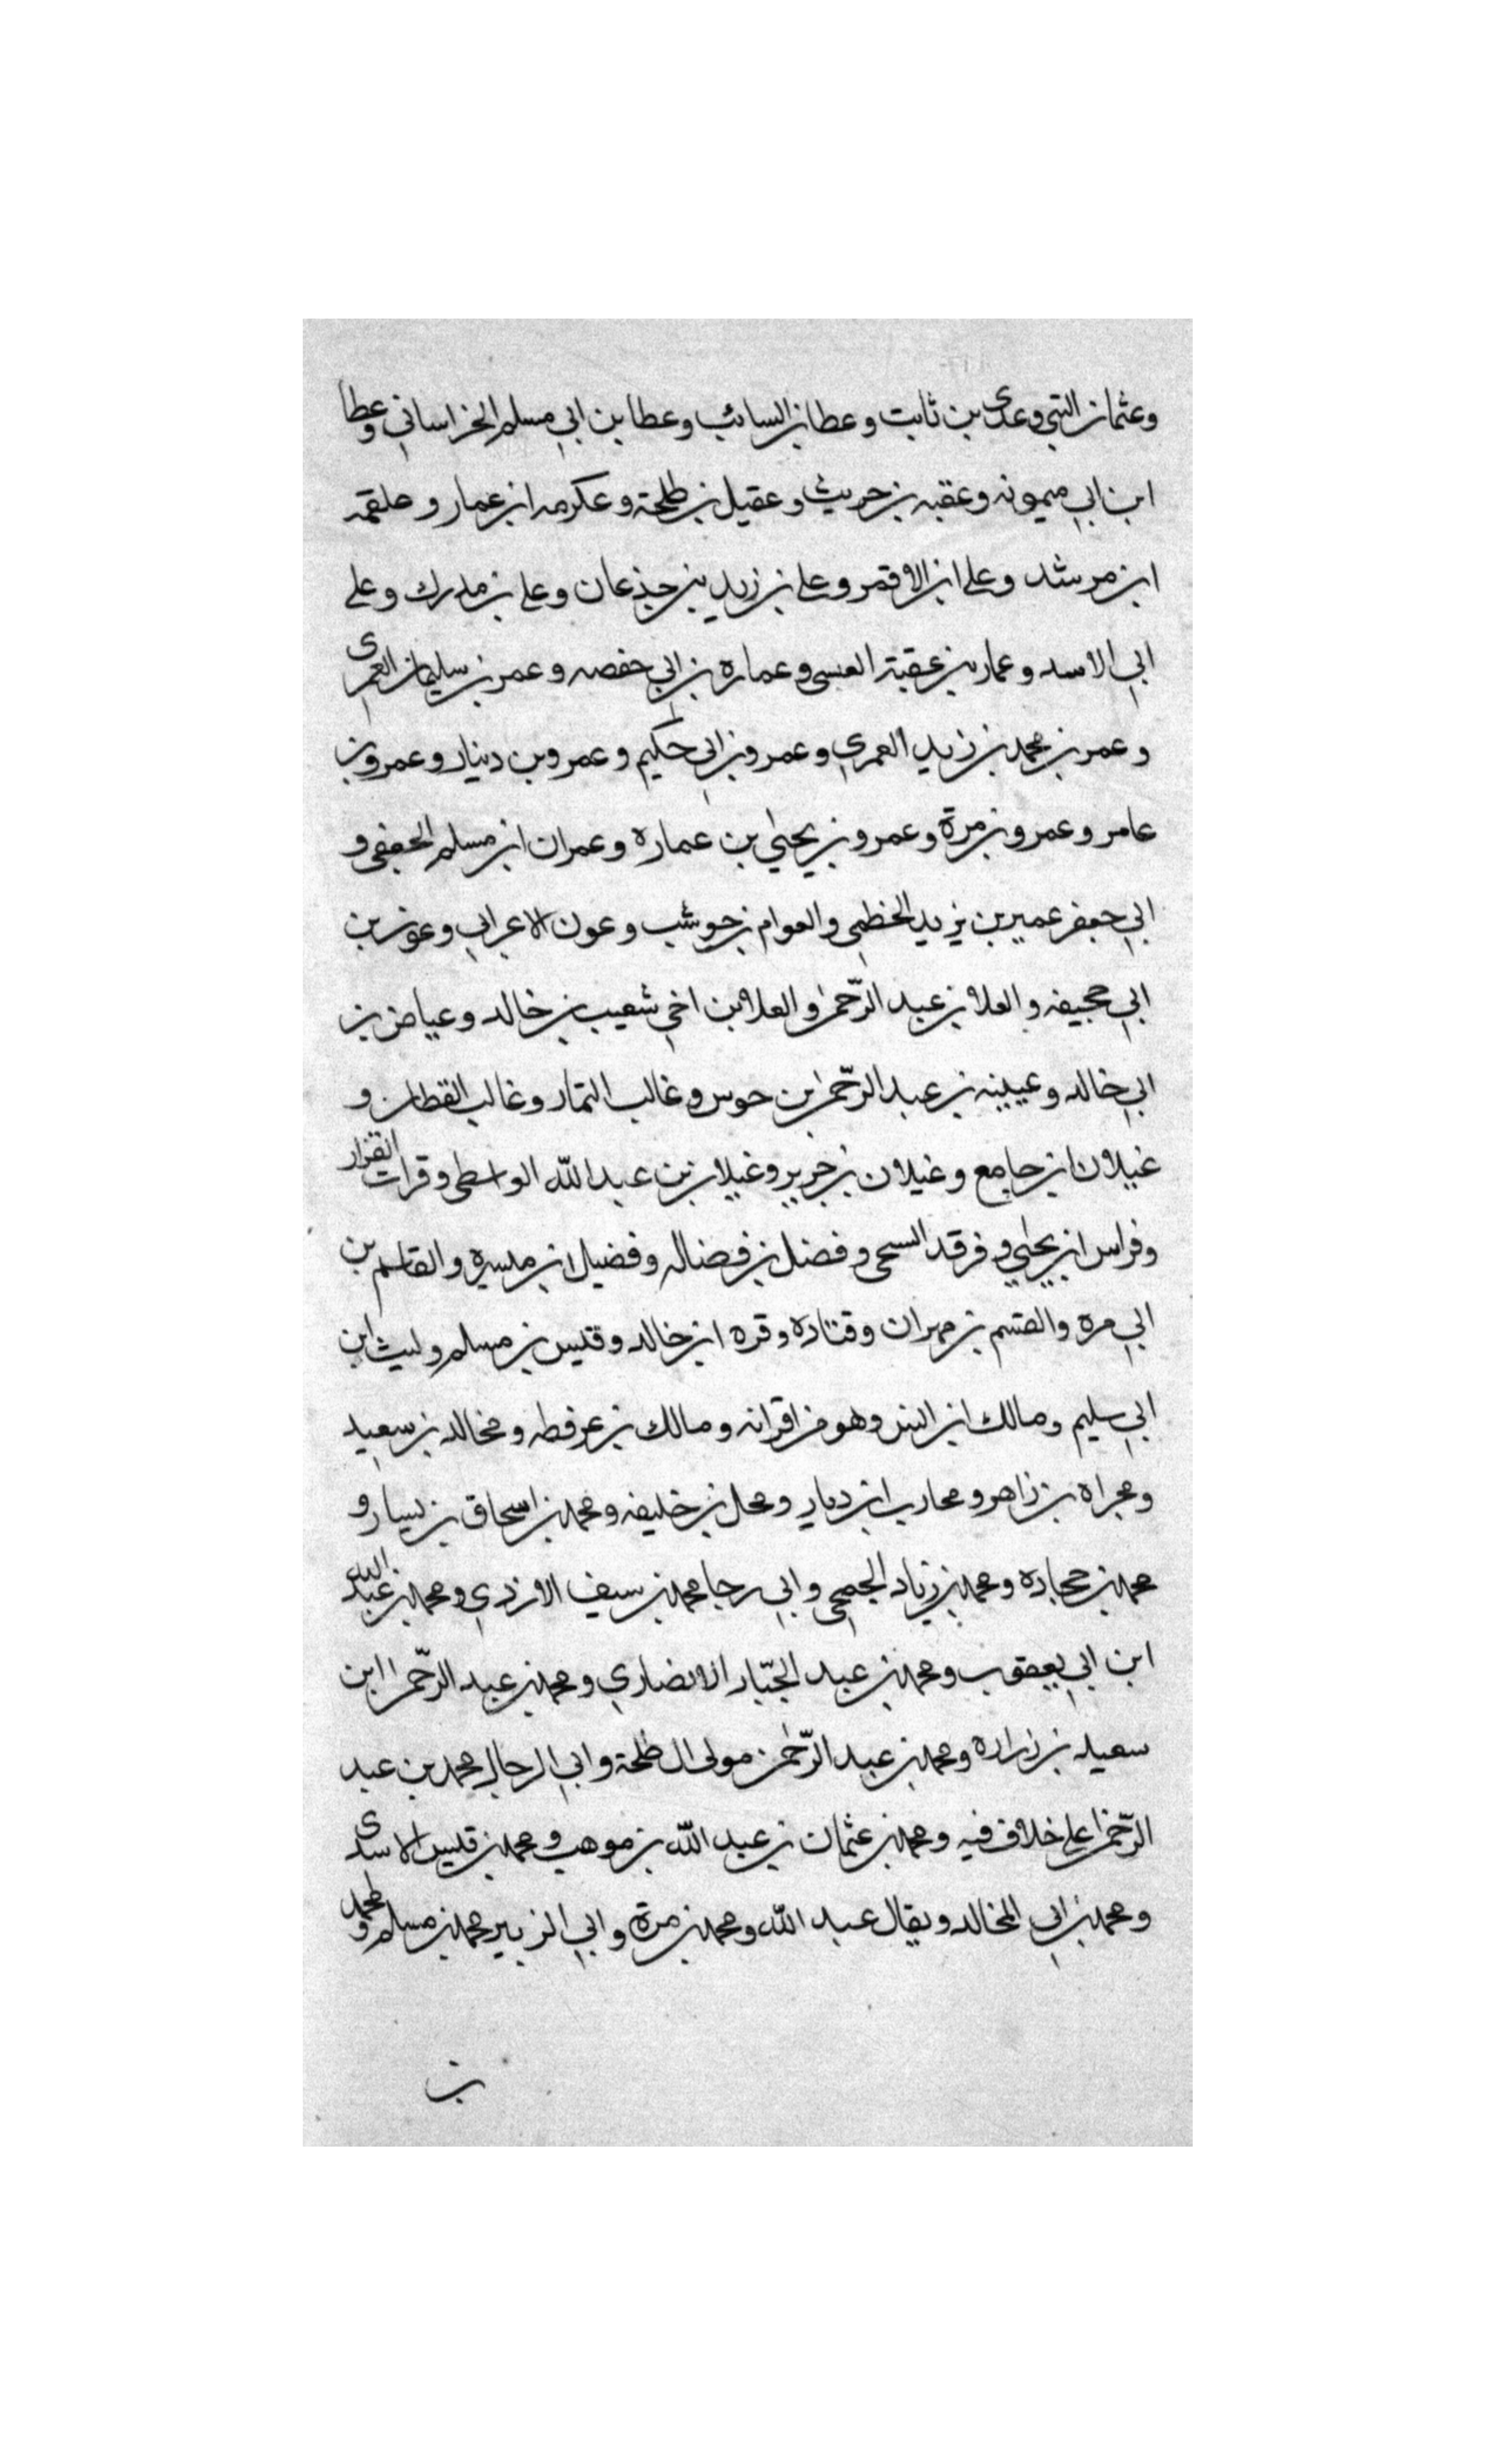 وعثمان البتي وعدى بن ثابت وعطا بن السائب وعطا بن ابي مسلم الخراساني وعطا
ابن ابي ميمونه وعقبه بن حريث وعقيل بن طلحة وعكرمه ابن عمار وعلقمه
ابن مرشد وعلى ابن الاقمر وعلى بن زيد بن جذعان وعلى بن مدرك وعلى
ابي الاسد وعمار بن عقبة العبسي وعماره بن ابي حفصه وعمر بن سليمان العمرى
وعمر بن محمد بن زيد العمري وعمرو بن ابي حكيم وعمرو بن دينار وعمرو بن
عامر وعمرو بن مرة وعمرو بن يحيي بن عماره وعمران ابن مسلم الجعفى و
ابي جعفر عمير بن يزيد الخطمي والعوام بن حوشب وعون الاعرابي وعون بن
ابي حجيفه والعلا بن عبد الرّحمن والعلا بن اخي شعيب بن خالد وعياض بن
ابي خالد وعيينه بن عبد الرّحمن بن حوس وغالب التمار وغالب القطان و
غيلان ابن جامع وغيلان بن جرير وغيلان بن عبد اللّه الواسطى وفرات القزار
وفراس ابن يحيي وفرقد السبحى وفضل بن فضاله وفضيل ابن ميسره والقاسم بن
ابي مره والقسم بن مهران وقتاده وقره ابن خالد وقيس بن مسلم وليث ابن
ابي سليم ومالك ابن انس وهو من اقرانه ومالك بن عرفطه ومخالد بن سعيد
ومجراه بن زاهر ومحارب ابن دبار ومحل بن خليفه ومحمد بن اسحاق بن يسار و
محمد بن حجاده ومحمد بن زياد الجمحي وابي رجا محمد بن سيف الازدي ومحمد بن عبد اللّه
ابن ابي يعقوب ومحمد بن عبد الجبّار الانصاري ومحمد بن عبد الرّحمن ابن
سعيد بن زراره ومحمد بن عبد الرّحمن مولى ال طلحة وابي الرجال محمد بن عبد
الرّحمن على خلاف فيه ومحمد بن عثمان بن عبد اللّه بن موهب ومحمد بن قيس الاسدى
ومحمد بن ابي المخالد ويقال عبد اللّه ومحمد بن مرة وابي الزبير محمد بن مسلم ومحمد
بن